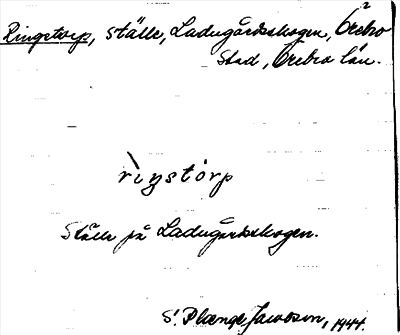 Ringstorp, ställe, Ladugårdsskogen, Örebro
stad, Örebro län.
rıŋstòrp
Ställe på Ladugårdsskogen.
S. Plænge Jacobson, 1944.